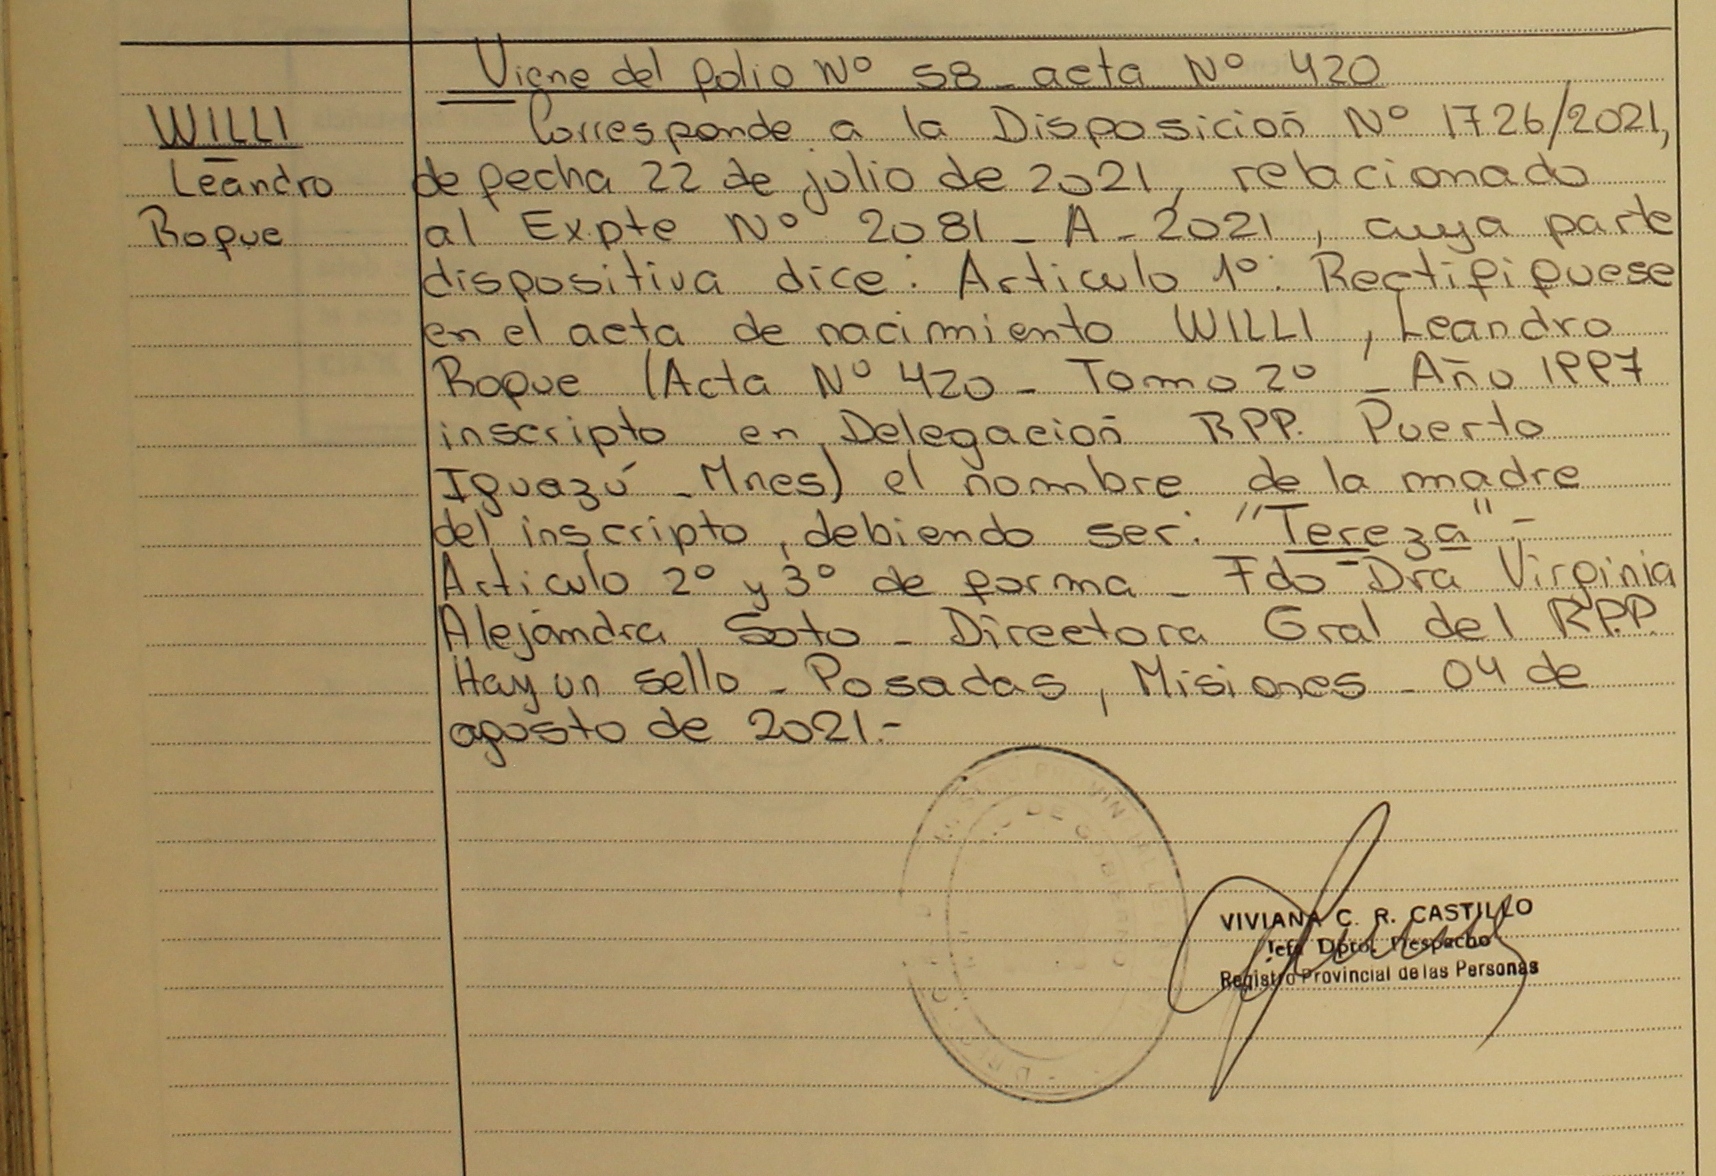 Viene del folio Nº 58 - acta Nº 420
WILLI
Leandro
Roque
Corresponde a la Disposición Nº 1726/2021,
de fecha 22 de julio de 2021, relacionado
al Expte Nº 2081 - A - 2021, cuya parte
dispositiva dice: Articulo 1º: Rectifiquese
en el acta de nacimiento WILLI, Leandro
Roque (Acta Nº 420 - Tomo 2º - Año 1997
inscripto en Delegación RPP. Puerto
Iguazú - Mnes) el nombre de la madre
del inscripto, debiendo ser: "Tereza" -
Articulo 2º y 3º de forma - Fdo Dra Virginia
Alejandra Soto - Directora Gral del RPP.
Hay un sello - Posadas, Misiones - 04 de
agosto de 2021.-
VIVIANA C. R. CASTILLO
Jefa Dpto. Despacho
Registro Provincial de las Personas
DE GOBIERNO